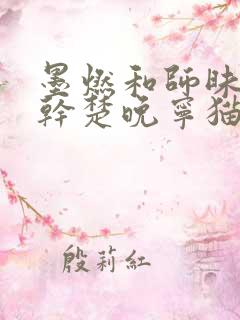 墨燃和師昧
幹楚晚寧猫
殷莉紅